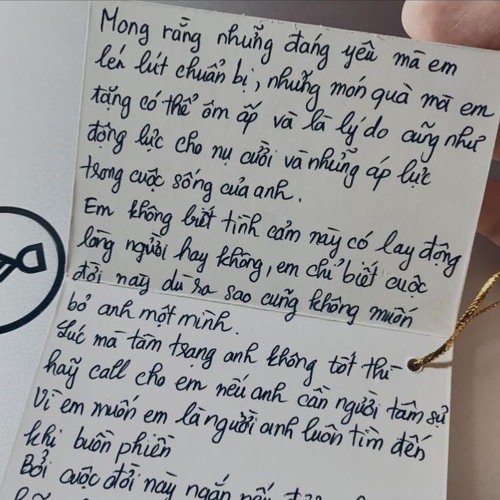 Mong rằng những đáng yêu mà em
lén lút chuẩn bị, những món quà mà em
tặng có thể ôm ấp và là lý do cũng như
động lực cho nụ cười và những áp lực
trong cuộc sống của anh.
Em không biết tình cảm này có lay động
lòng người hay không, em chỉ biết cuộc
đời này dù ra sao cũng không muốn
bỏ anh một mình.
Lúc mà tâm trạng anh không tốt thì
hãy call cho em nếu anh cần người tâm sự
Vì em muốn em là người anh luôn tìm đến
khi buồn phiền
Bởi cuộc đời này ngắn